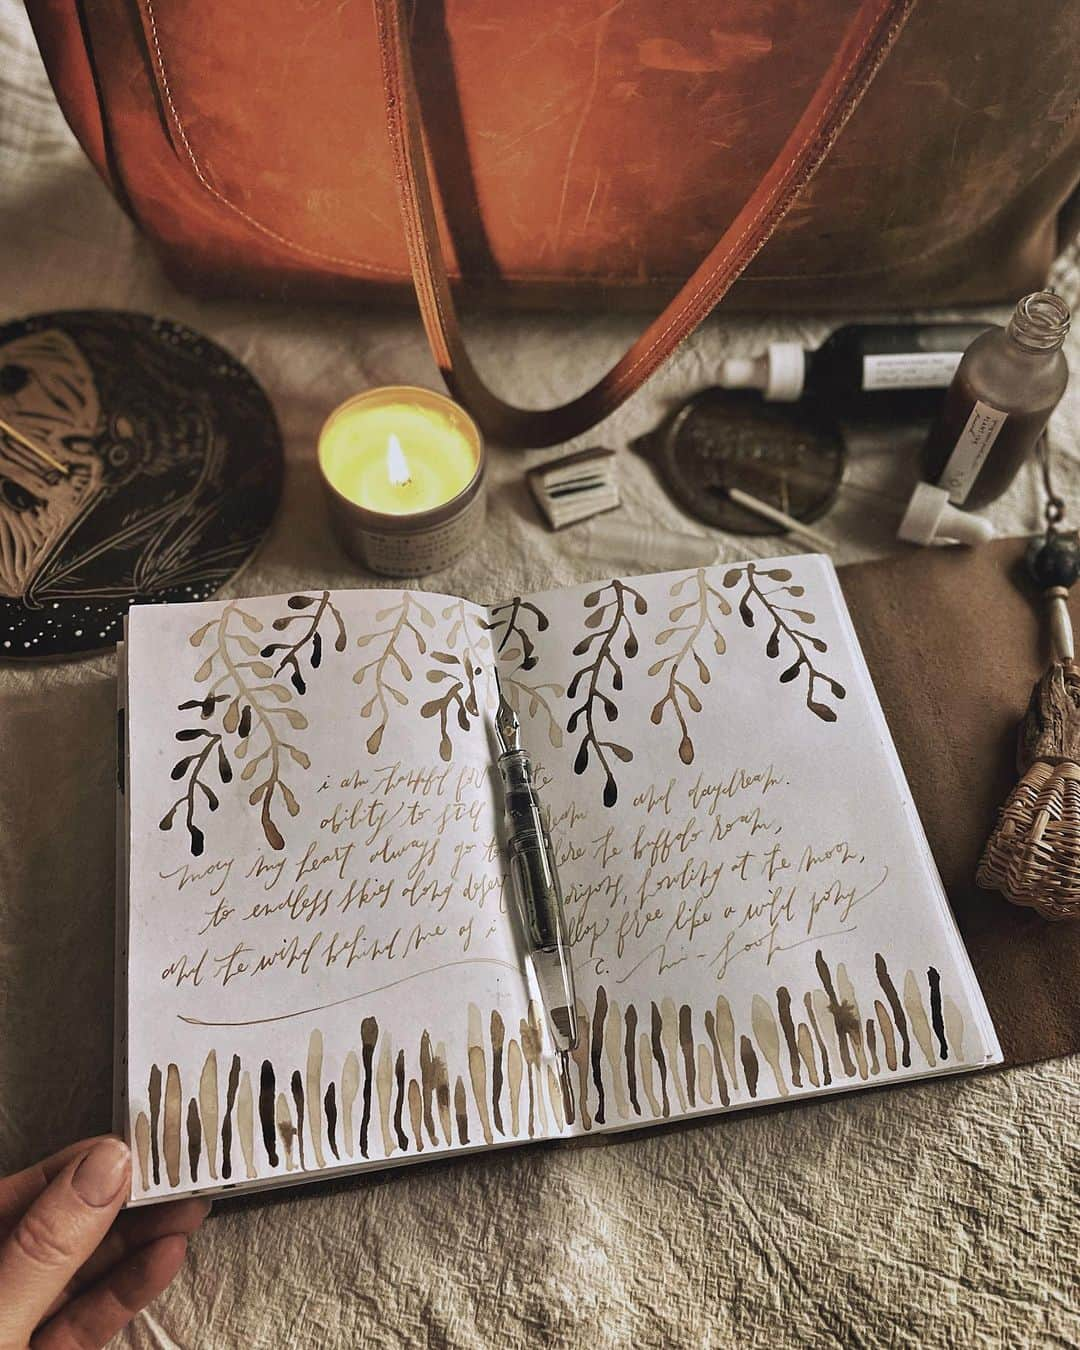 i am thankful for the
ability to still dream and daydream.
may my heart always go to where the buffalo roam,
to endless skies along desert horizons, howling at the moon,
and the wind behind me as i gallop free like a wild pony